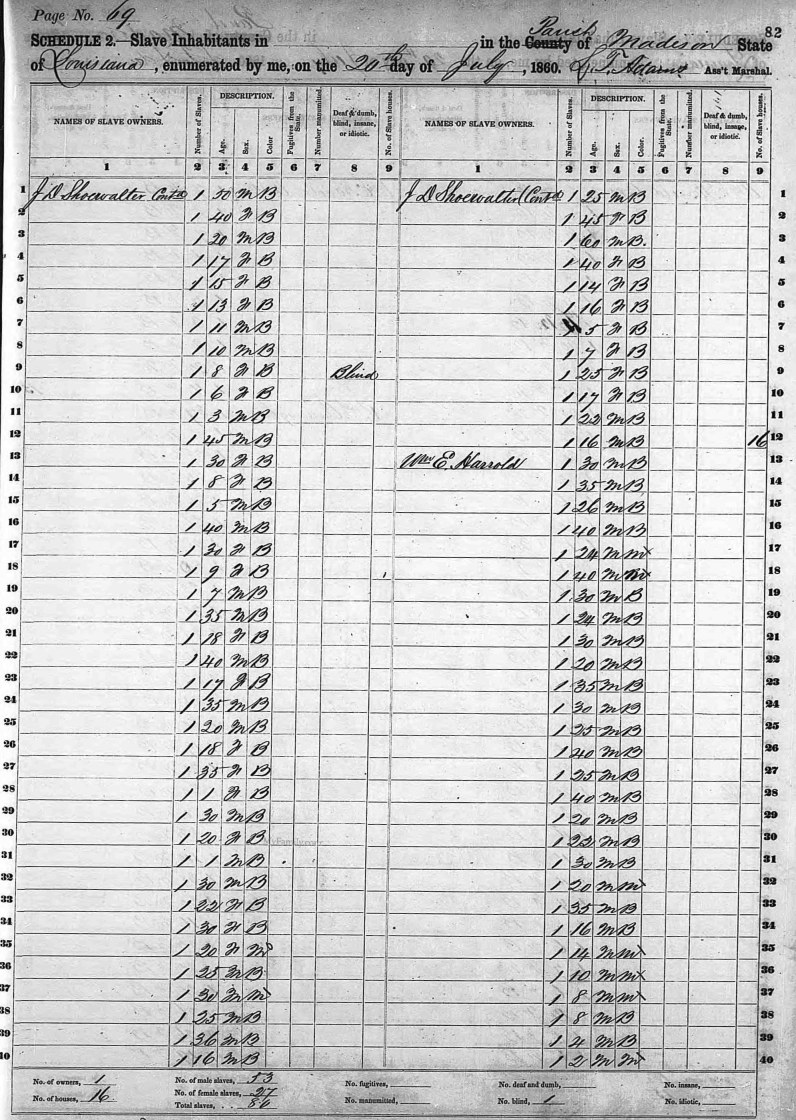 Page No. 69
82
SCHEDULE 2.—Slave Inhabitants in in the County Parish of Madison State
of Louisiana, enumerated by me, on the 20th day of July, 1860. D. T. Adams Ass't Marshal.
NAMES OF SLAVE OWNERS. Number of Slaves. DESCRIPTION. Age. Sex. Color Fugitives from the State. Number manumitted. Deaf & dumb, blind, insane, or idiotic. No. of Slave houses. NAMES OF SLAVE OWNERS. Number of Slaves. DESCRIPTION. Age. Sex. Color. Fugitives from the State. Number manumitted. Deaf & dumb, blind, insane, or idiotic. No. of Slave houses.
1 2 3 4 5 6 7 8 9 1 2 3 4 5 6 7 8 9
1 J D Shoewalter Contd 1 50 M B J D Shoewalter (Contd 1 25 M B 1
2 1 40 F B 1 45 F B 2
3 1 20 M B 1 60 M B. 3
4 1 17 F B 1 40 F B 4
5 1 15 F B 1 14 F B 5
6 1 13 F B 1 16 F B 6
7 1 11 M B 1 5 F B 7
8 1 10 M B 1 7 F B 8
9 1 8 F B Blind 1 25 F B 9
10 1 6 F B 1 17 F B 10
11 1 3 M B 1 22 M B 11
12 1 45 M B 1 16 M B 16 12
13 1 30 F B Wm E. Harrold 1 30 M B 13
14 1 8 F B 1 35 M B 14
15 1 5 M B 1 26 M B 15
16 1 40 M B 1 40 M B 16
17 1 30 F B 1 24 M M x 17
18 1 9 F B 1 40 M M x 18
19 1 7 M B 1 30 M B 19
20 1 35 M B 1 24 M B 20
21 1 18 F B 1 30 M B 21
22 1 40 M B 1 20 M B 22
23 1 17 F B 1 35 M B 23
24 1 35 M B 1 30 M B 24
25 1 20 M B 1 25 M B 25
26 1 18 F B 1 40 M B 26
27 1 35 F B 1 25 M B 27
28 1 1 F B 1 40 M B 28
29 1 30 M B 1 20 M B 29
30 1 20 F B 1 22 M B 30
31 1 1 M B 1 30 M B 31
32 1 30 M B 1 20 M M x 32
33 1 22 F B 1 35 M B 33
34 1 30 F B 1 16 M B 34
35 1 20 F M x 1 14 M M x 35
36 1 25 M B 1 10 M M x 36
37 1 30 M M x 1 8 M M x 37
38 1 25 M B 1 8 M B 38
39 1 36 M B 1 4 M B 39
40 1 16 M B 1 2 M M x 40
No. of owners, 1 No. of male slaves, 53 No. fugitives, No. deaf and dumb, No. insane,
No. of houses, 16 No. of female slaves, 27 No. manumitted, No. blind, 1 No. idiotic,
Total slaves, 80